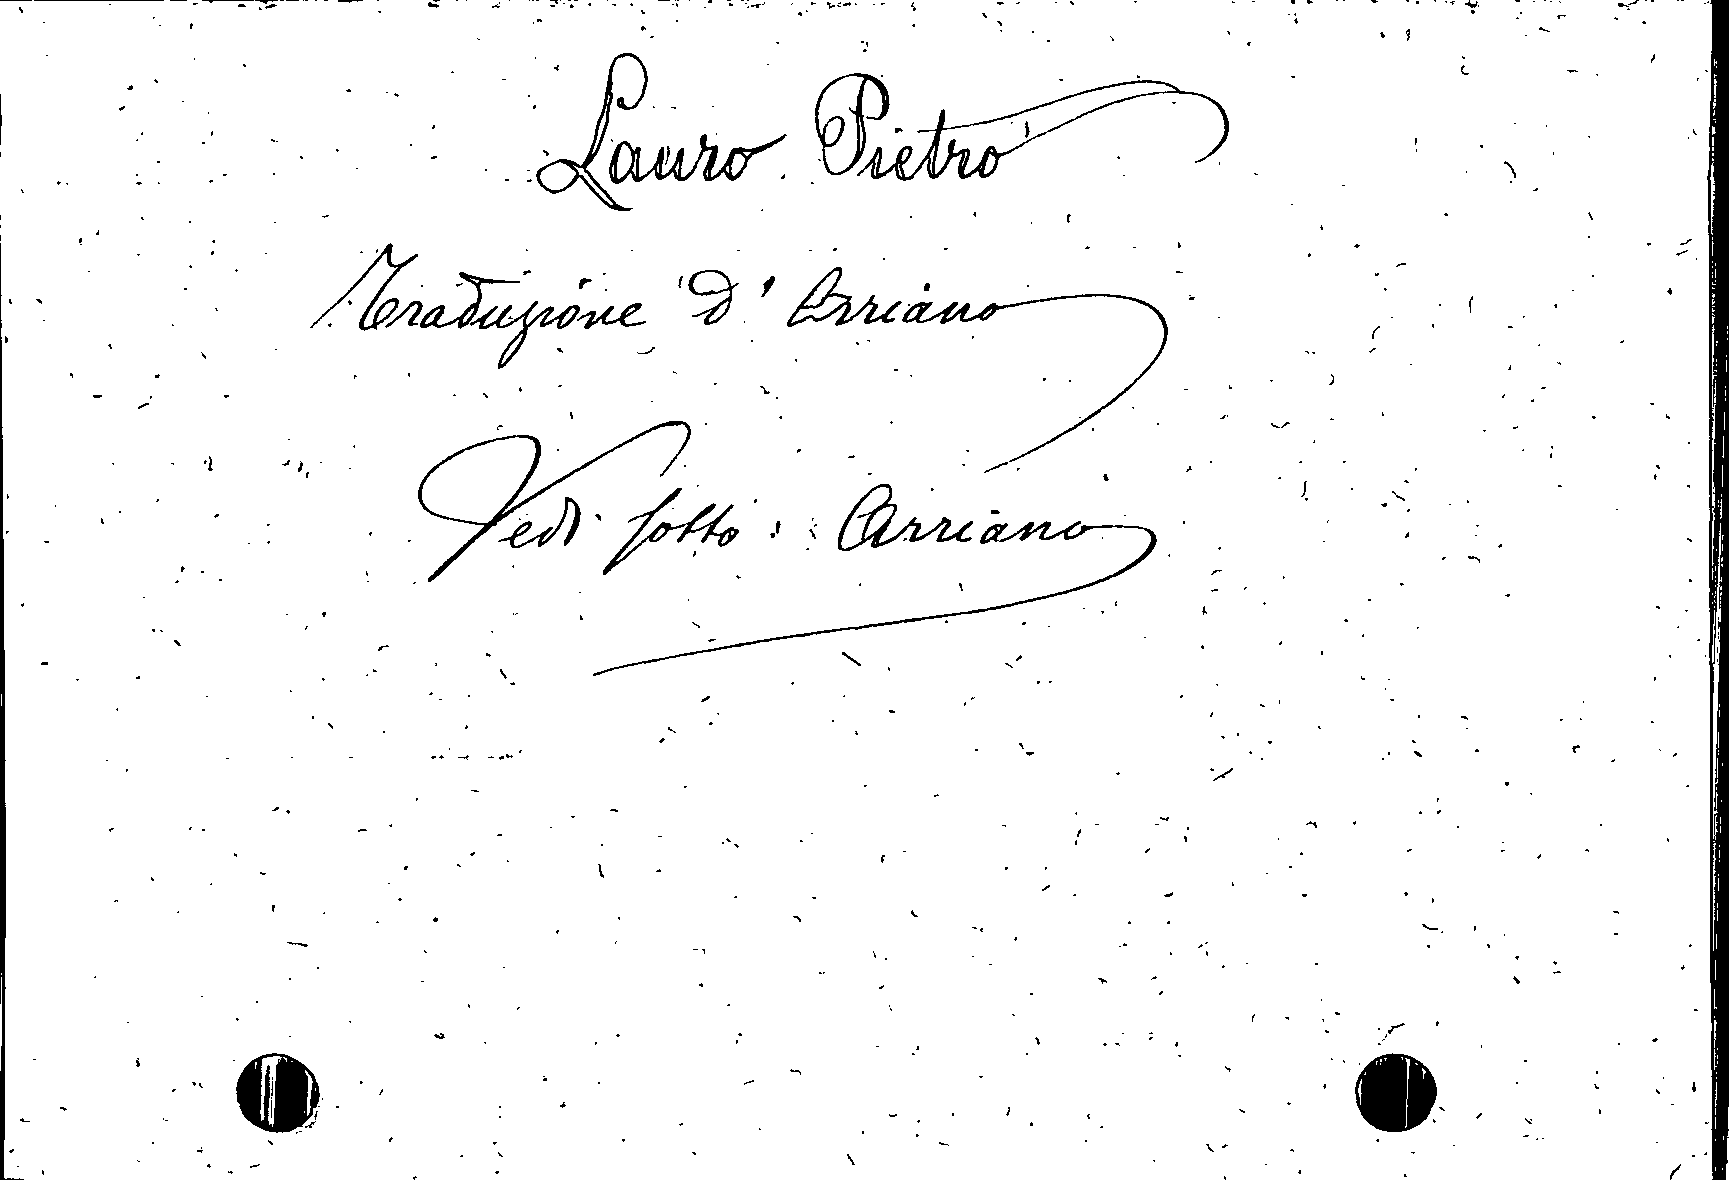 Lauro Pietro
Traduzione d' Arriano
Vedi sotto: Arriano